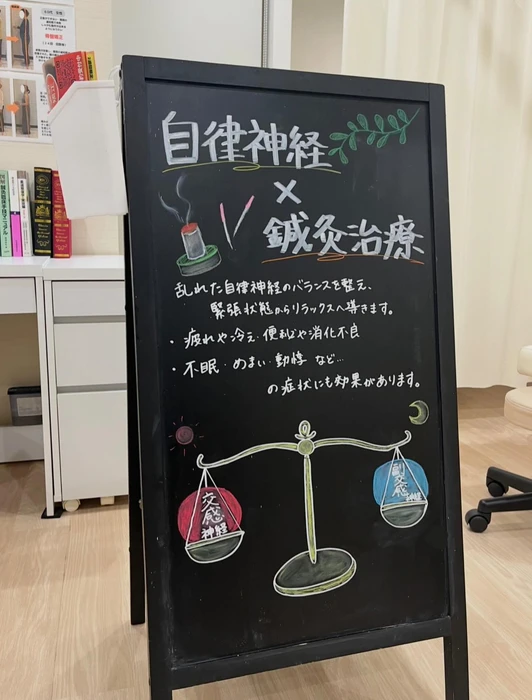 自律神経
×
鍼灸治療
乱れた自律神経のバランスを整え、
緊張状態からリラックスへ導きます。
・疲れや冷え 便秘や消化不良
・不眠・めまい・動悸 など…
の症状にも効果があります。
交感
神経
副交感
神経